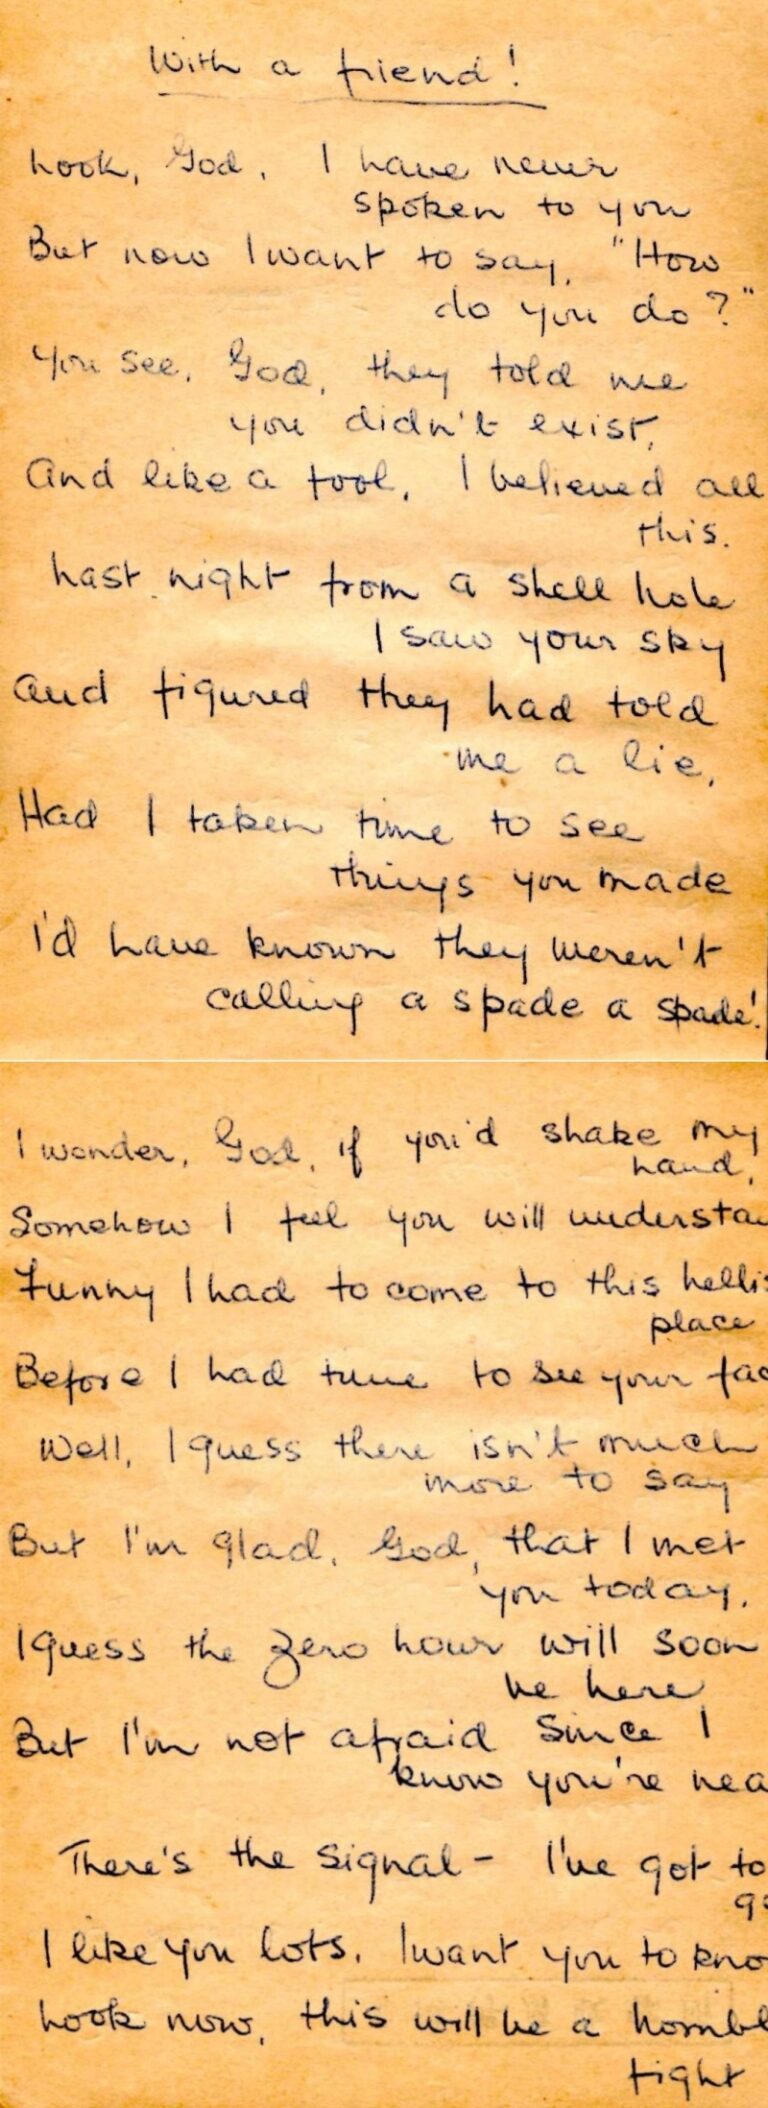 With a friend!
Look, God, I have never
spoken to you
But now I want to say, "How
do you do?"
You see, God, they told me
you didn't exist,
And like a fool, I believed all
this.
Last night from a shell hole
I saw your sky
And figured they had told
me a lie,
Had I taken time to see
things you made
I'd have known they weren't
calling a spade a spade!
I wonder, God, if you'd shake my
hand,
Somehow I feel you will understa
Funny I had to come to this hellis
place
Before I had time to see your fac
Well, I guess there isn't much
more to say
But I'm glad, God, that I met
you today.
I guess the zero hour will soon
be here
But I'm not afraid since I
know you're nea
There's the signal - I've got to
go
I like you lots. I want you to kno
Look now, this will be a horribl
fight